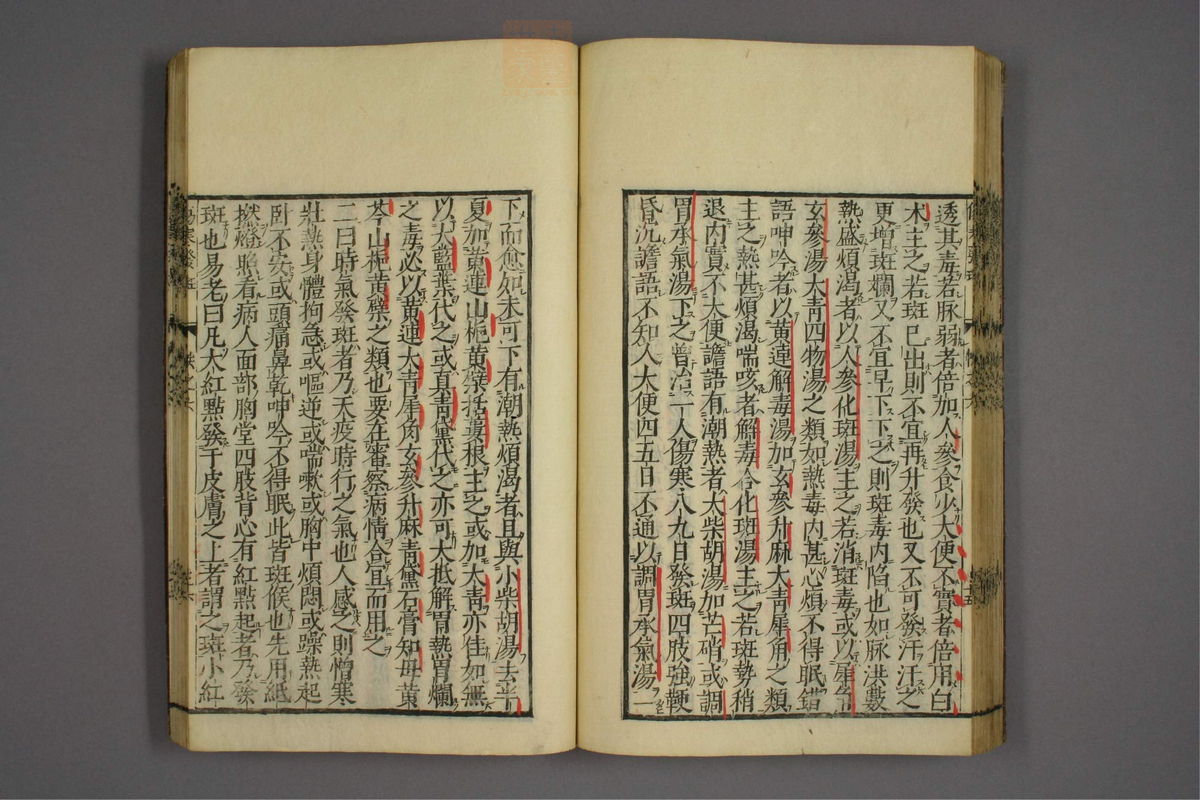 透其毒若脉弱者倍加人參食少大便不實者倍用白
术主之若斑已出則不宜再升發也又不可發汗汗之
更增斑爛又不宜早下下之則斑毒內陷也如脉洪數
熱盛煩渴者以人參化斑湯主之若消斑毒或以犀角
玄參湯大青四物湯之類如熱毒內甚心煩不得眠錯
語呻吟者以黃連解毒湯加玄參升麻大青犀角之類
主之熱甚煩渴喘咳者解毒合化斑湯主之若斑勢稍
退內實不大便譫語有潮熱者大柴胡湯加芒硝或調
胃承氣湯下之曾治一人傷寒八九日發斑四肢強鞕
昏沉譫語不知人大便四五日不通以調胃承氣湯一
下而愈如未可下有潮熱煩渴者且與小柴胡湯去半
夏加黃連山梔黃檗栝蔞根主之或加大青亦佳如無
以大藍葉代之或真青黛代之亦可大抵解胃熱胃爛
之毒必以黃連大青犀角玄參升麻青黛石膏知母黃
芩山梔黃檗之類也要在審察病情合宜而用之
二曰時氣發斑者乃天疫時行之氣也人感之則憎寒
壯熱身體拘急或嘔逆或喘嗽或胸中煩悶或躁熱起
卧不安或頭痛鼻乾呻吟不得眠此皆斑候也先用紙
撚燈照看病人面部胸堂四肢背心有紅點起者乃發
斑也易老曰凡大紅點發于皮膚之上者謂之斑小紅
傷寒發斑